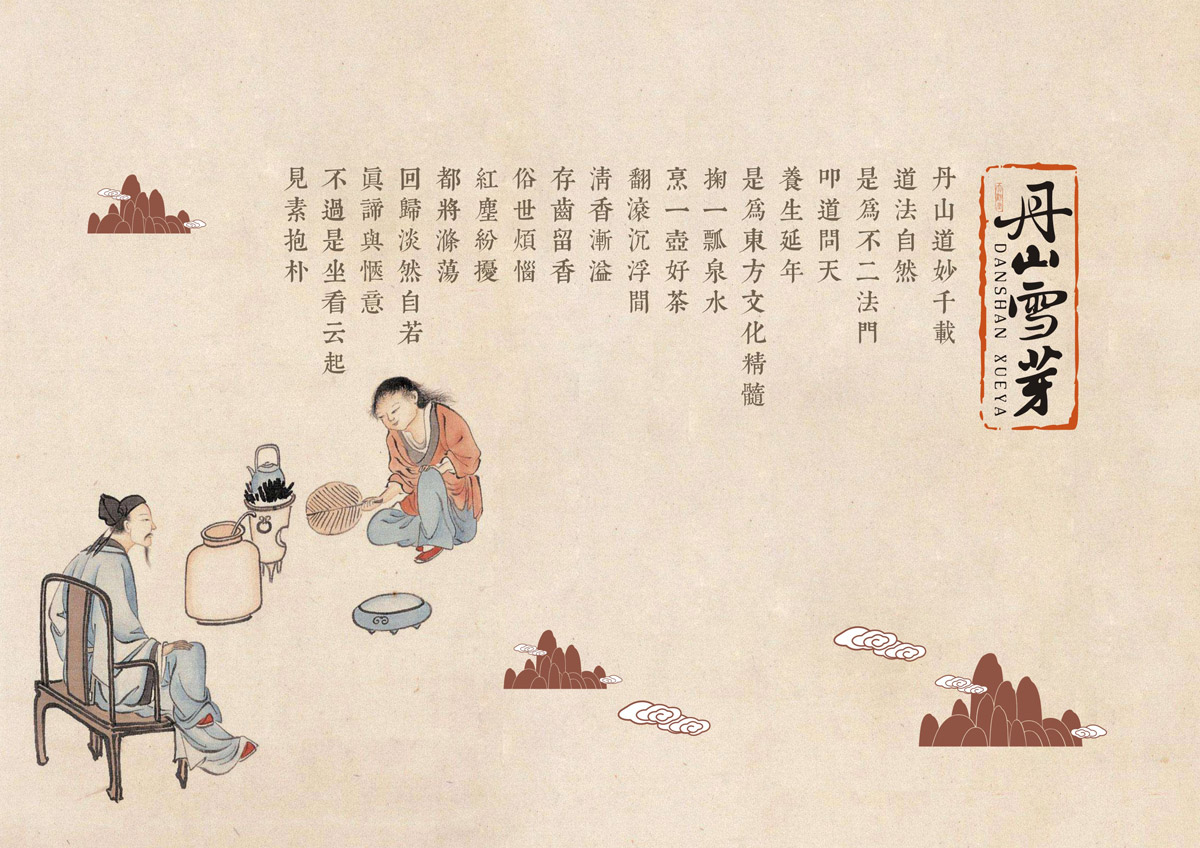 丹山雪芽
DANSHAN XUEYA
丹山道妙千載
道法自然
是為不二法門
叩道問天
養生延年
是為東方文化精髓
掬一瓢泉水
烹一壺好茶
翻滾沉浮間
清香漸溢
存齒留香
俗世煩惱
紅塵紛擾
都將滌蕩
回歸淡然自若
眞諦與愜意
不過是坐看云起
見素抱朴